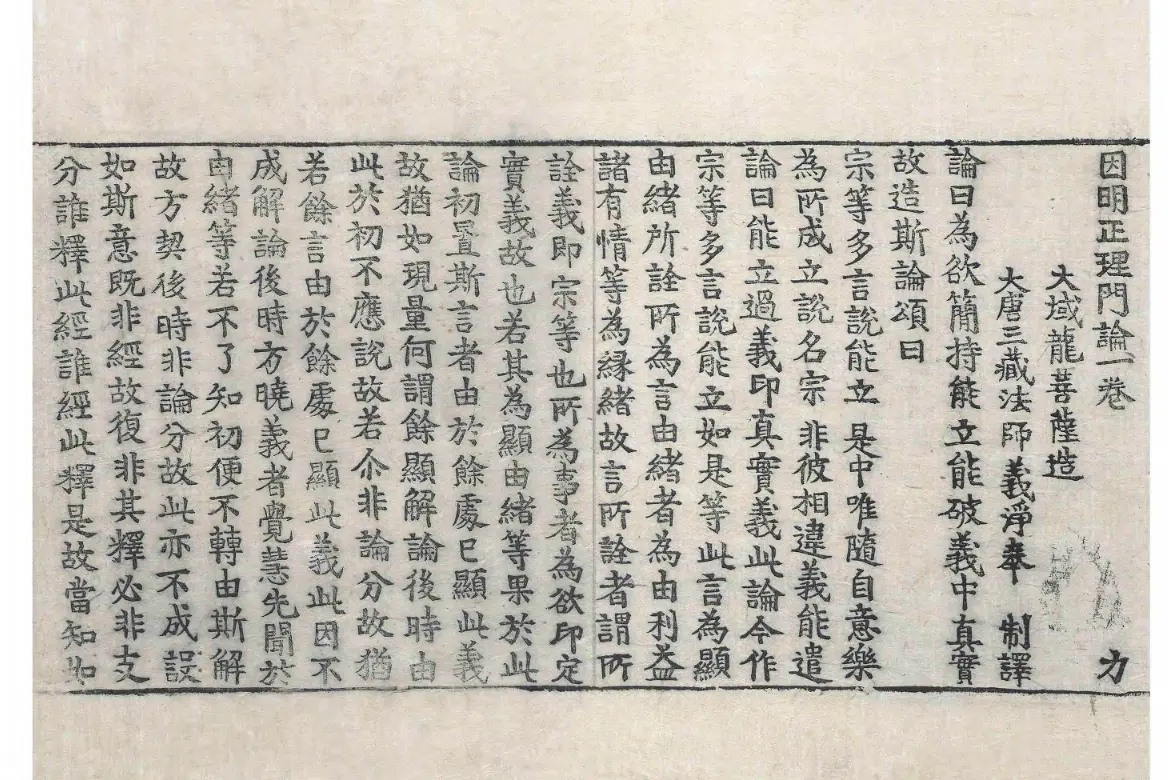 因明正理門論一卷 力
大域龍菩薩造
大唐三藏法師義淨奉 制譯
論曰為欲簡持能立能破義中真實
故造斯論頌曰
宗等多言說能立 是中唯隨自意樂
為所成立說名宗 非彼相違義能遣
論曰能立過義印真實義此論今作
宗等多言說能立如是等此言為顯
由緒所詮所為言由緒者為由利益
諸有情等為緣緒故言所詮者謂所
詮義即宗等也所為事者為欲印定
實義故也若其為顯由緒等果於此
論初置斯言者由於餘處已顯此義
故猶如現量何謂餘顯解論後時由
此於初不應說故若尒非論分故猶
若餘言由於餘處已顯此義此因不
成解論後時方曉義者覺慧先聞於
由緒等若不了知初便不轉由斯解
故方契後時非論分故此亦不成設
如斯意既非經故復非其釋必非支
分誰釋此經誰經此釋是故當知如